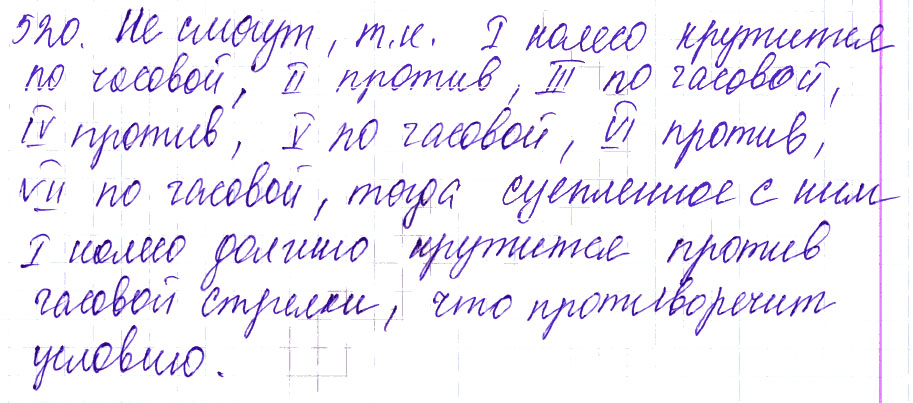 520. Не смогут, т.к. I колесо крутится
по часовой, II против, III по часовой,
IV против, V по часовой, VI против,
VII по часовой, тогда сцепленное с ним
I колесо должно крутится против
часовой стрелки, что противоречит
условию.